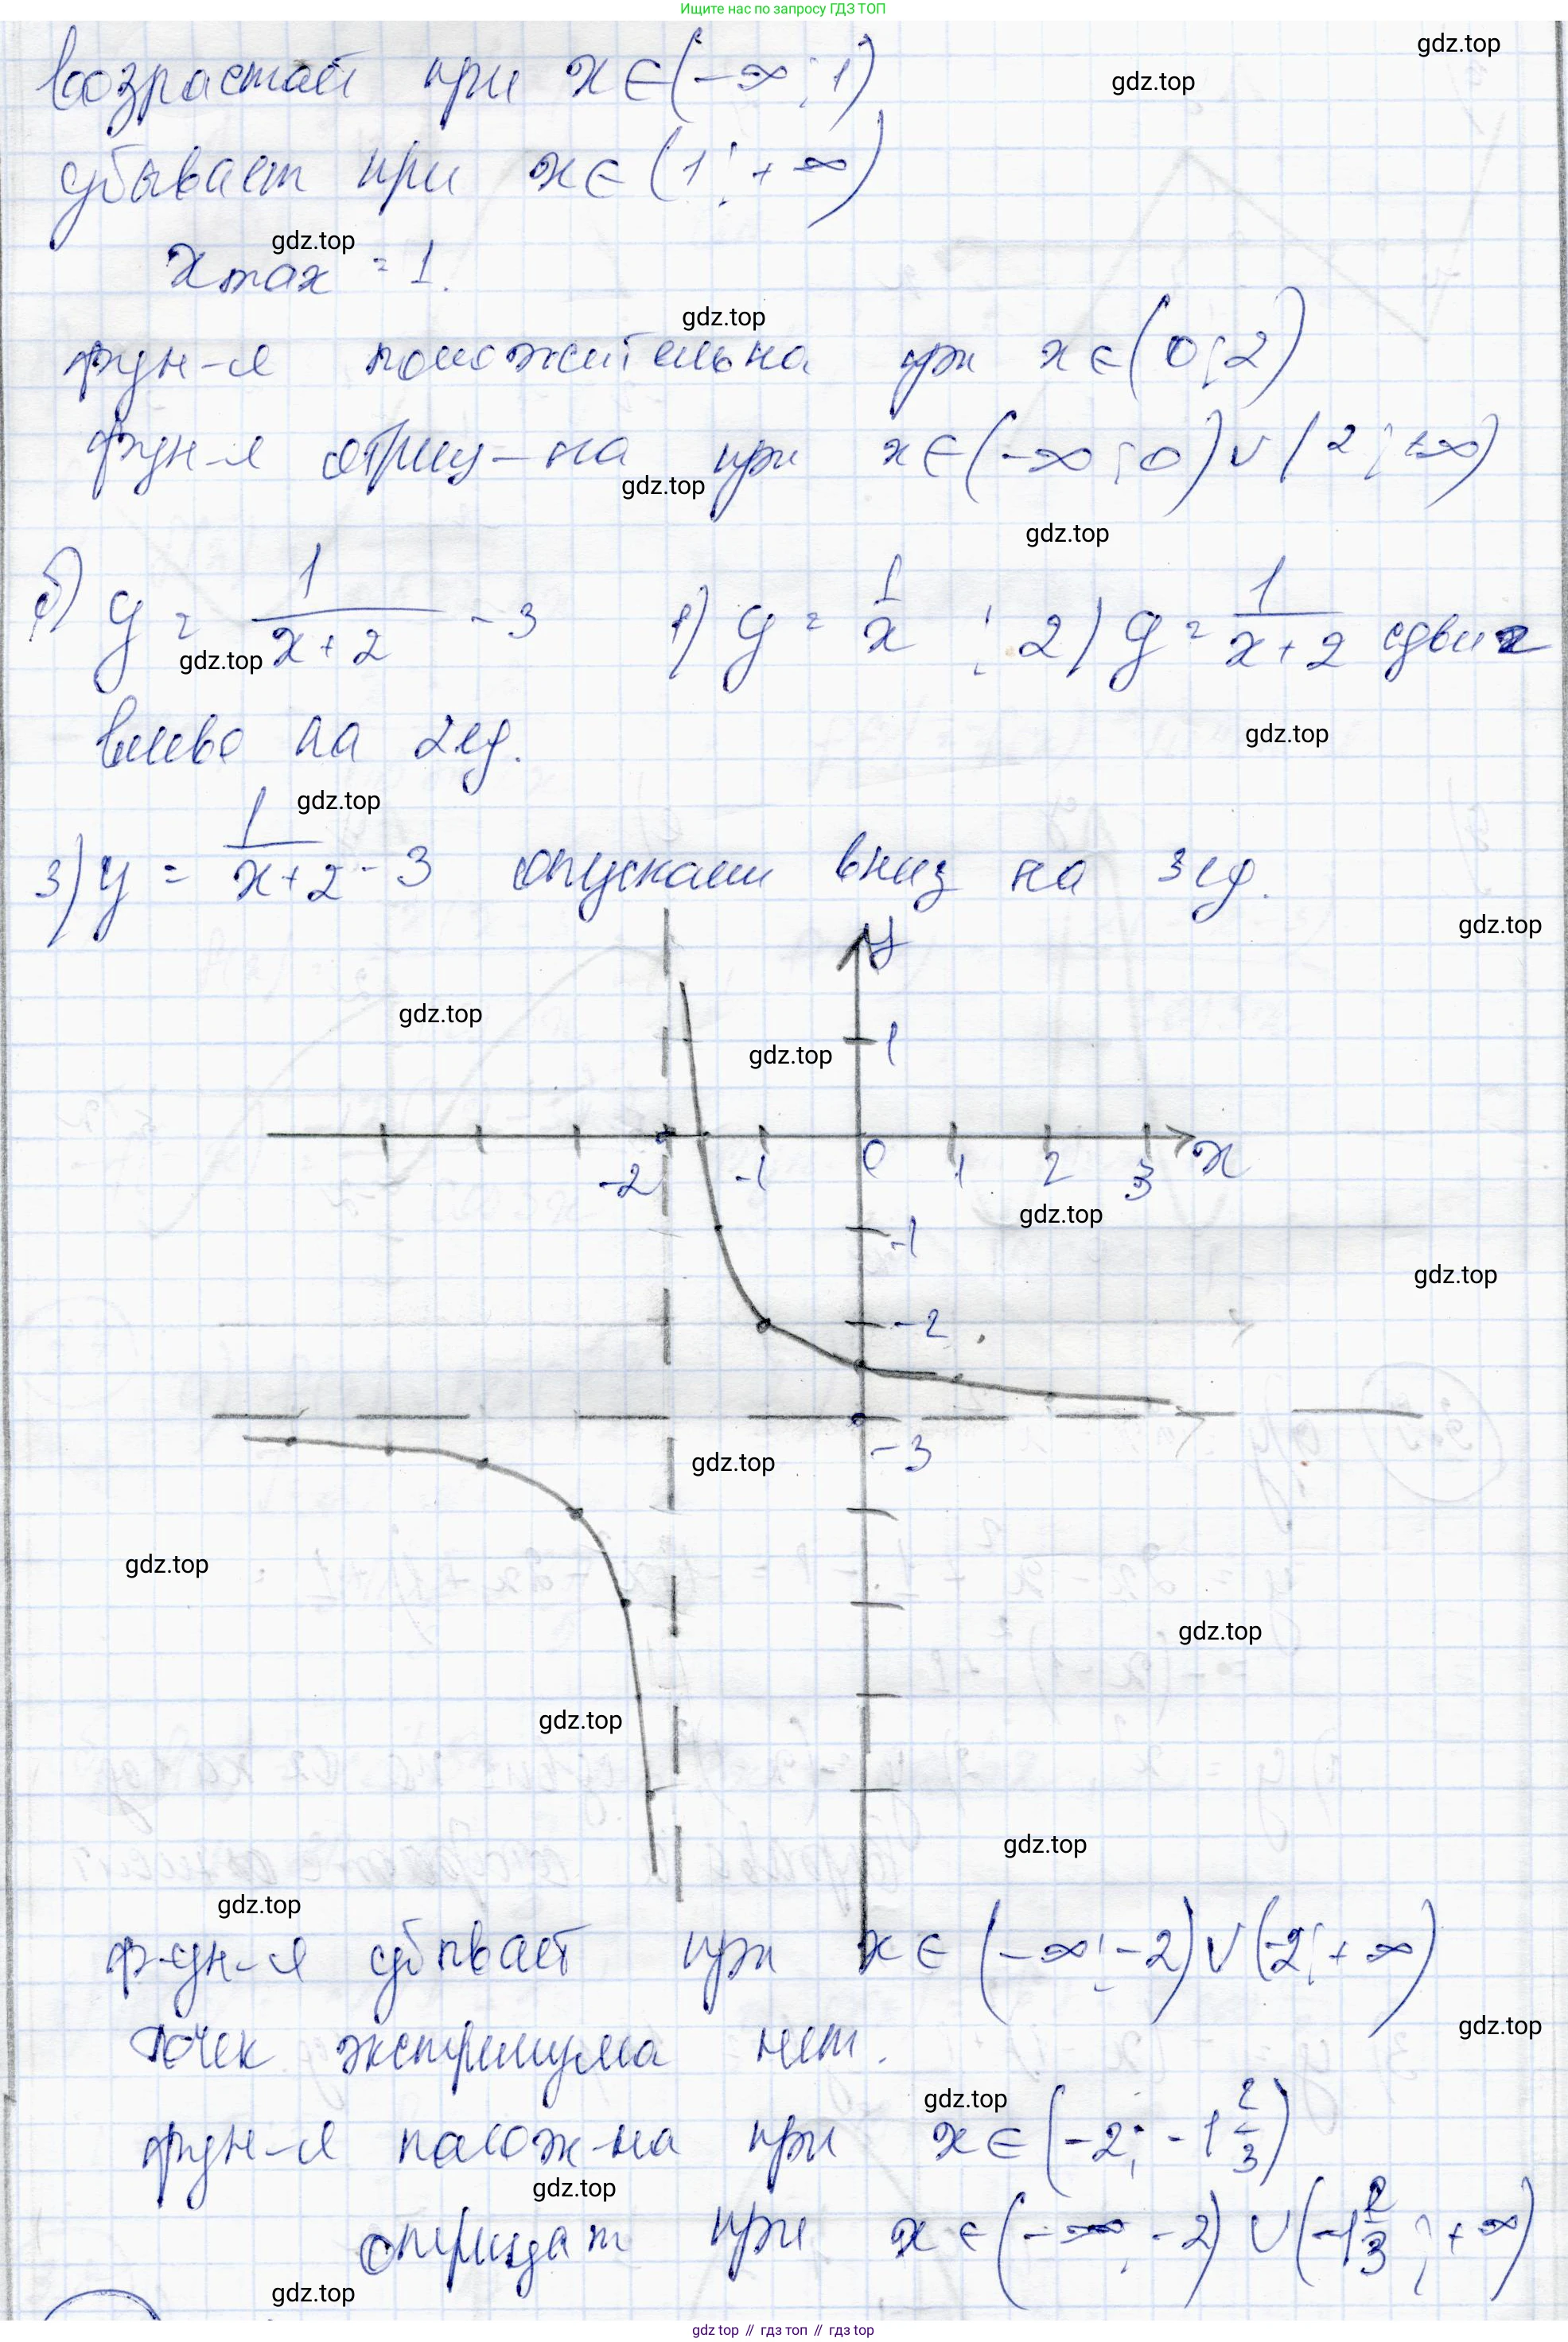 Ищите нас по запросу ГДЗ ТОП
возрастает при x∈(-∞;1)
gdz.top
gdz.top
убывает при x∈(1;+∞)
gdz.top
x max = 1.
gdz.top
фун-я положительна при x∈(0;2)
фун-я отриц-на при x∈(-∞;0)∪(2;+∞)
gdz.top
gdz.top
б) y = 1/(x+2) - 3 1) y = 1/x ; 2) y = 1/(x+2) сдвиг
gdz.top
влево на 2ед.
gdz.top
gdz.top
3) y = 1/(x+2) - 3 опускаем вниз на 3ед.
gdz.top
y
gdz.top
1
gdz.top
-2 -1 0 1 2 3 x
gdz.top
-1
gdz.top
-2
-3
gdz.top
gdz.top
gdz.top
gdz.top
gdz.top
gdz.top
фун-я убывает при x∈(-∞;-2)∪(-2;+∞)
gdz.top
точек экстремума нет.
gdz.top
фун-я полож-на при x∈(-2;-1 2/3)
gdz.top
отрицат при x∈(-∞;-2)∪(-1 2/3;+∞)
gdz.top
gdz.top // гдз топ // гдз.top